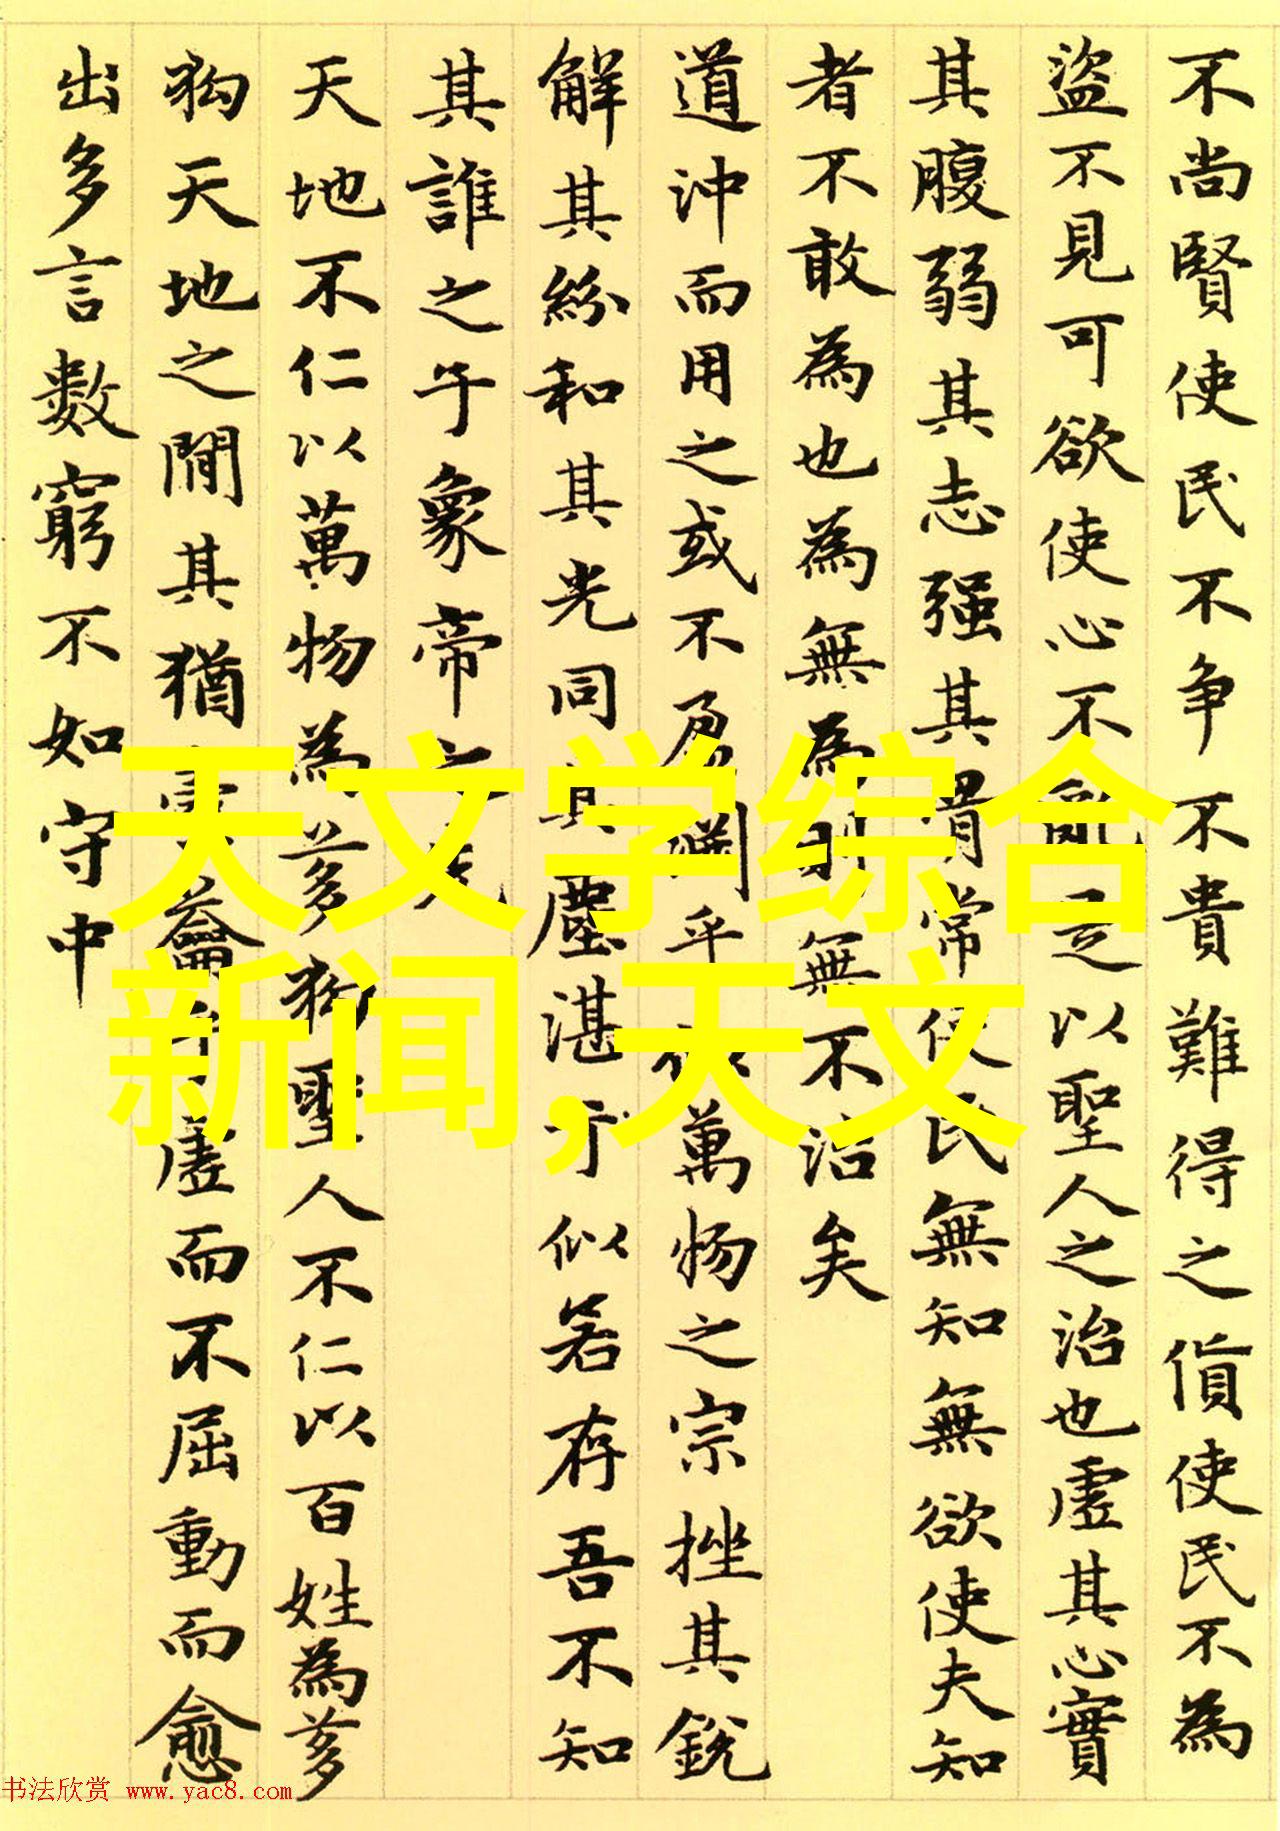 不尚賢使民不争不貴難得之貨使民不為
盜不見可欲使心不亂是以聖人之治也虛其心實
其腹弱其志强其骨常使民無知無欲使夫知
者不敢為也為無為則無不治矣
道沖而用之或不盈淵乎似萬物之宗挫其銳
解其紛和其光同其塵湛兮似若存吾不知
其誰之子象帝之先
天地不仁以萬物為芻狗聖人不仁以百姓為芻
狗天地之間其猶橐籥乎虛而不屈動而愈
出多言數窮不如守中
天文学综合
新闻,天文
书法欣赏 www.yac8.com